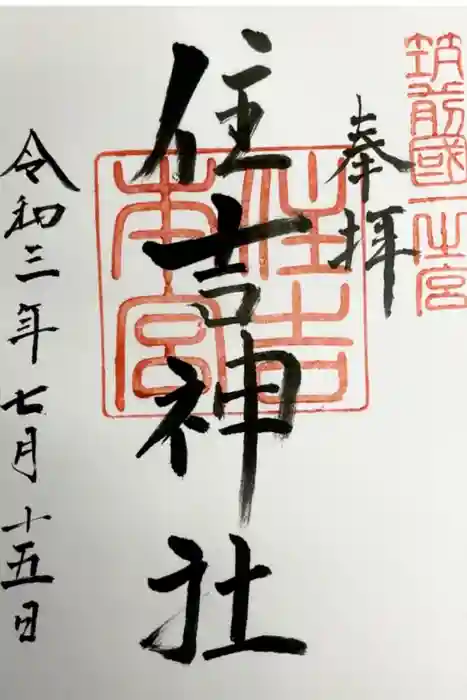 筑前國一之宮
奉拝
住吉神社
住吉本宮
令和三年七月十五日